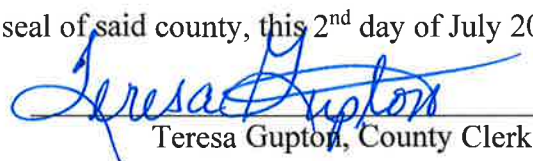 seal of said county, this 2nd day of July 20
Teresa Gupton
Teresa Gupton, County Clerk